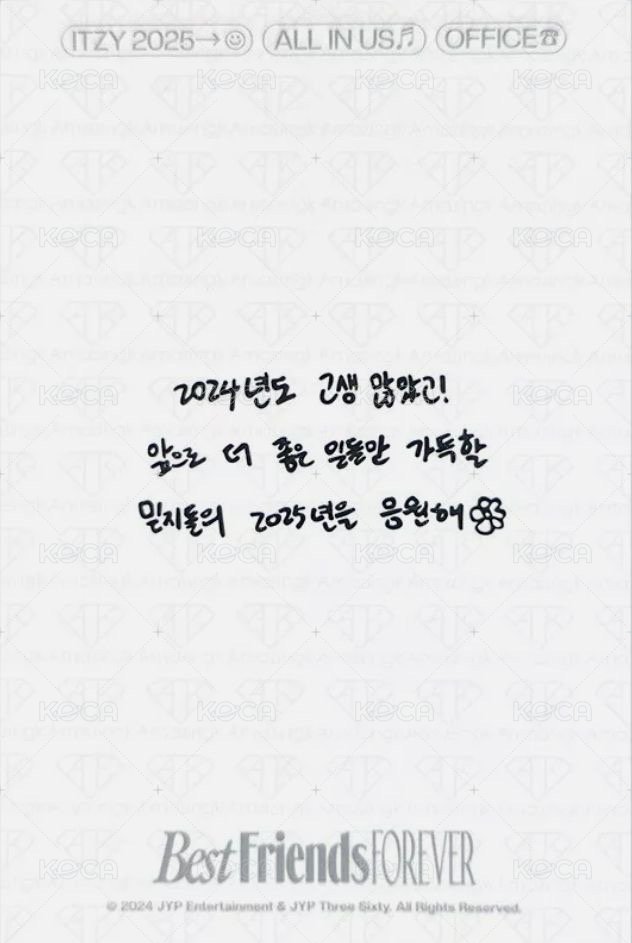 ITZY 2025→☺ ALL IN US♬ OFFICE☎
2024년도 고생 많았고!
앞으로 더 좋은 일들만 가득할
믿지들의 2025년을 응원해
Best Friends FOREVER
© 2024 JYP Entertainment & JYP Three Sixty. All Rights Reserved.
KOCA